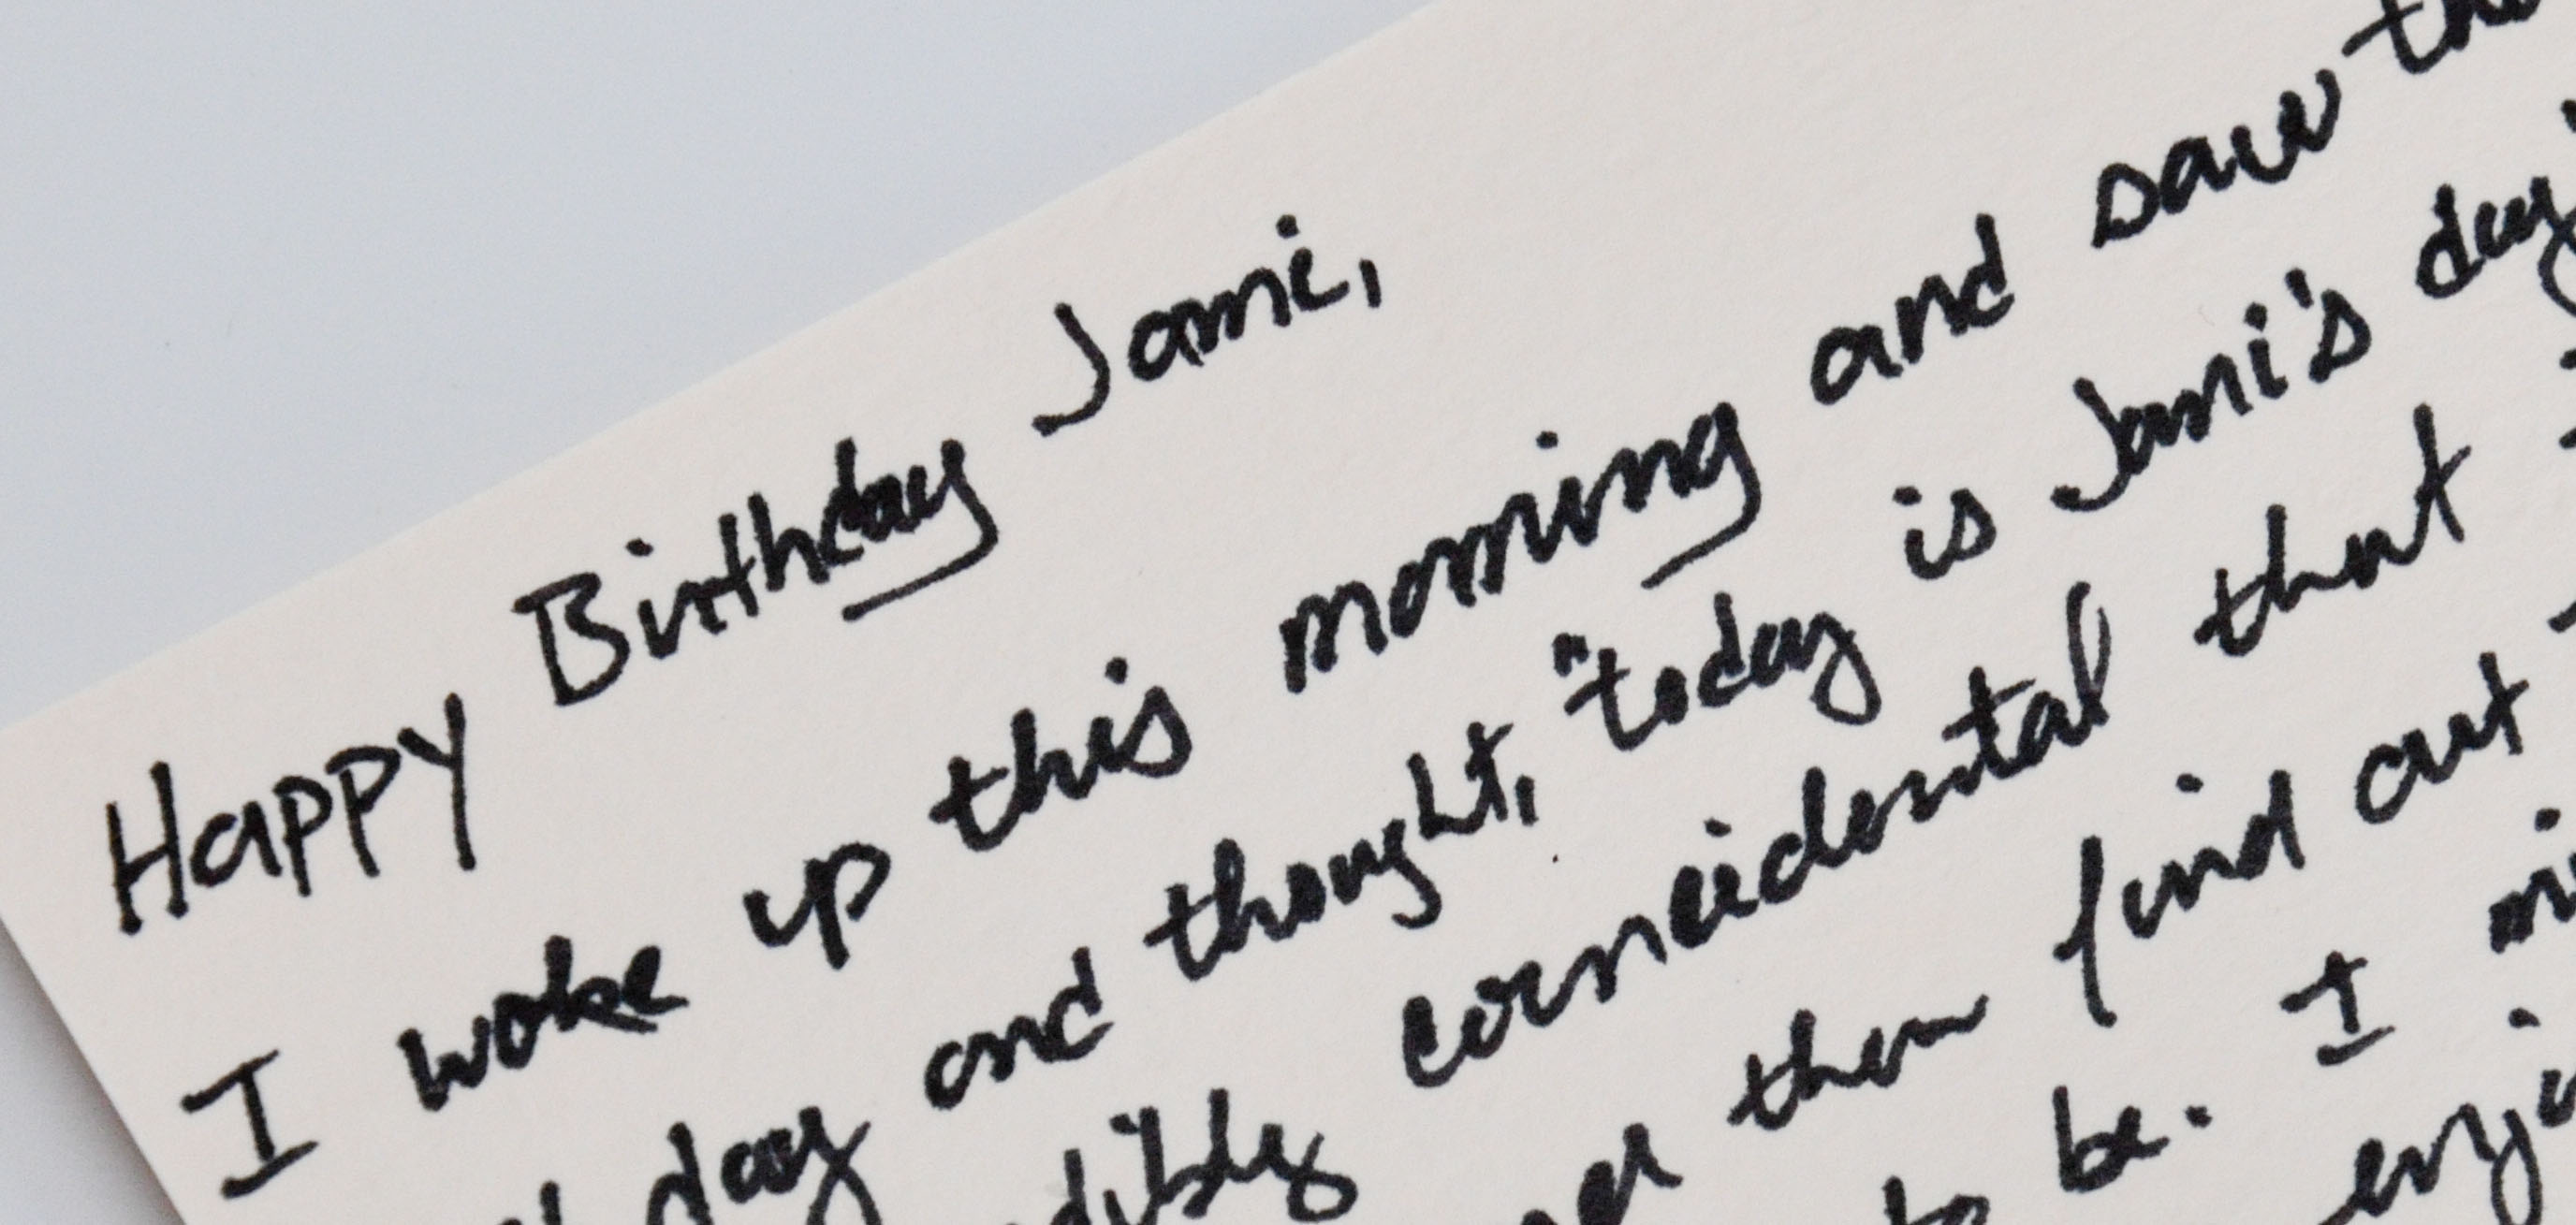 Happy Birthday Jami,
I woke up this morning and saw
day and thought, "today is Jami's day
coincidental that
then find out
to be. I